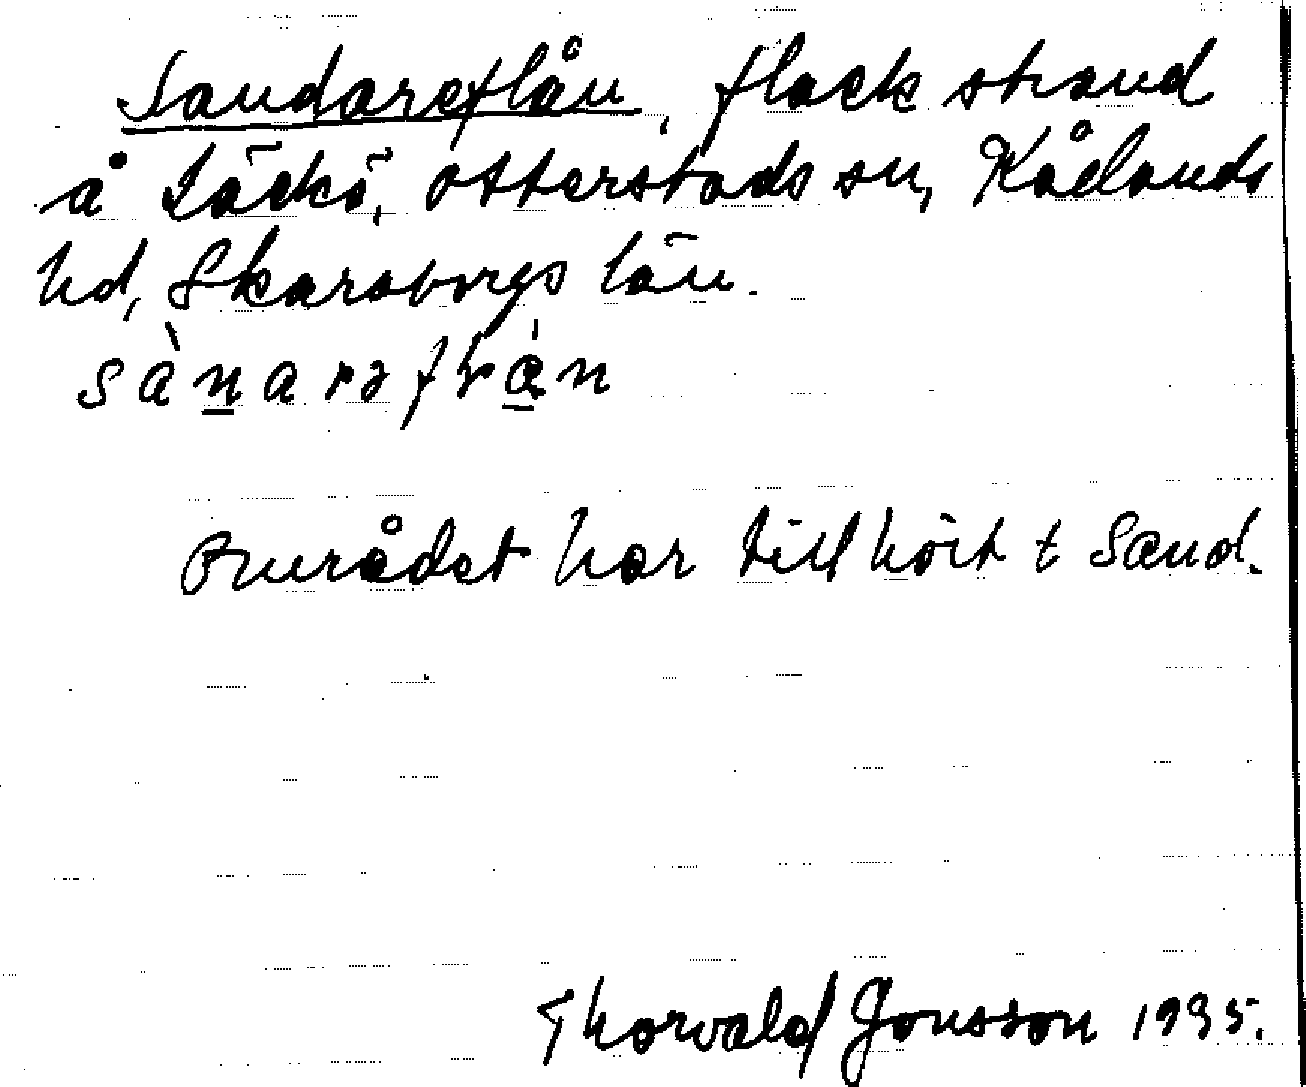 Sandareflån, flack strand
å Läckö, Otterstads sn, Kållands
hd, Skaraborgs län.
sànarəfrån
Området har tillhört t Sand.
Thorvald Jonsson 1935.